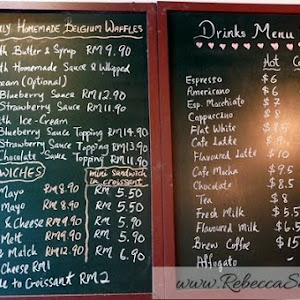 LY HOMEMADE BELGIUM WAFFLES
th Butter & Syrup RM 9.90
th Homemade Sauce & Whipped
eam (Optional)
Blueberry Sauce RM 12.90
Strawberry Sauce RM 11.90
th Ice-Cream
Blueberry Sauce Topping RM 14.90
Strawberry Sauce Topping RM 13.90
Chocolate Sauce Topping RM 11.90
WICHES
mini sandwich
in croissant
Mayo RM 8.90 RM 5.50
Mayo RM 8.90 RM 5.50
& Cheese RM 9.90 RM 5.90
Melt RM 9.90 RM 5.90
& Match RM 12.90 RM 6.90
Cheese RM 1
e to Croissant RM 2
Drinks Menu
Hot Co
Espresso $ 6
Americano $ 6
Esp. Macchiato $ 7
Cappuccino $ 8
Flat White $ 8.5
Cafe Latte $ 9
Flavoured Latte $ 10
Cafe Mocha $ 9
Chocolate $ 8.5
Tea $ 8
Fresh Milk $ 5.5
Flavoured Milk $ 6.5
Brew Coffee $ 15
Affogato -
www.RebeccaS